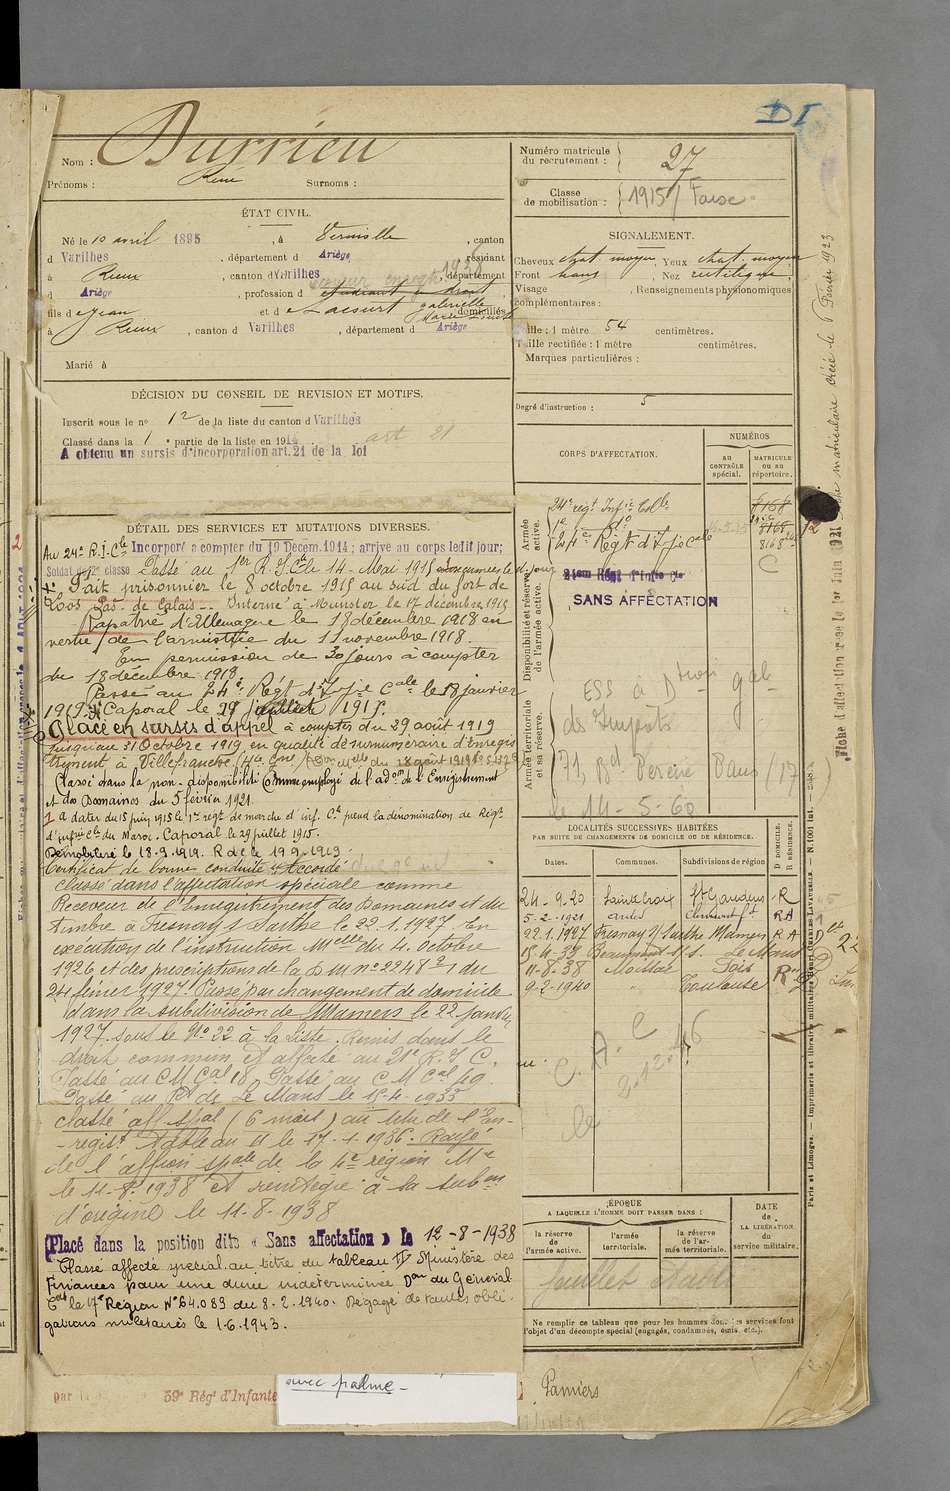 DI
Nom : Durrieu
Prénoms : René Surnoms :
ÉTAT CIVIL.
Né le 10 avril 1895, à Verniolle, canton
d Varilhes, département d Ariège, résidant
à Rieux, canton d Varilhes, département
d Ariège, profession d étudiant en droit
1938
fils d e Jean et d e Lacourt gabrielle domiciliés
à Rieux, canton d Varilhes, département d Ariège
Marié à
DÉCISION DU CONSEIL DE REVISION ET MOTIFS.
Inscrit sous le no 12 de la liste du canton d Varilhes
Classé dans la 1e partie de la liste en 1914 art 21
A obtenu un sursis d'incorporation art. 21 de la loi
DÉTAIL DES SERVICES ET MUTATIONS DIVERSES.
Au 24e R.I.Cle Incorporé a compter du 19 Decem. 1914 ; arrive au corps ledit jour;
Soldat de 2e classe Passé au 1er R.I.Cle le 14 Mai 1915
Fait prisonnier le 8 octobre 1915 au sud du fort de
Loos Pas-de-Calais-. Interné à Munster le 17 décembre 1915
Rapatrié d'Allemagne le 18 décembre 1918 en
vertu de l'armistice du 11 novembre 1918.
En permission de 30 jours à compter
du 18 décembre 1918.
Passé au 24e Régt d'Infie Cale le 18 janvier
1919. Caporal le 29 juillet 1915.
Placé en sursis d'appel à compter du 29 août 1919
jusqu'au 31 Octobre 1919, en qualité de surnuméraire d'Enregis
trement à Villefranche (Hte Gne)
Classé dans la non-disponibilité comme employé de l'adon de l'Enregistrement
et des Domaines du 5 février 1921.
1 à dater du 15 juin 1915 le 1er régt de marche d'inf. Cle prend la dénomination de Régt
d'infrie Cle du Maroc. Caporal le 29 juillet 1915.
Démobilisé le 18.9.1919. R de le 19.9.1919.
Certificat de bonne conduite "Accordé"
Classé dans l'affectation spéciale comme
Receveur de l'Enregistrement des Domaines et du
timbre à Fresnay s/ Sarthe le 22.1.1927. En
exécution de l'instruction Melle du 4. Octobre
1926 et des prescriptions de la D M no 2248 2/1 du
24 février 1927. Passé par changement de domicile
dans la subdivision de Mamers le 22 janvier
1927. sous le No 22 à la Liste. Remis dans le
droit commun et affecté au 21e R.I.C.
Passé au C M Cal 18. Passé au C M Cal 49.
Passé au Pt de Le Mans le 15-4-1933
Classé aff. spal (6 mois) au titre de l'En-
-regist. tableau II le 17-1-1936. Rayé
de l'affion spale de la 4e région Mre
le 11-8-1938 et réintégré à la subon
d'origine le 11-8-1938
Placé dans la position dite « Sans affectation » le 12-8-1938
Classé affecté spécial au titre du tableau IV Ministère des
Finances pour une durée indéterminée Don du Général
Cdt la 17e Région No 64.089 du 8.2.1940. Dégagé de toutes obli-
gations militaires le 1.6.1943.
par
39e Régt d'Infante
avec palme -
Pamiers
Numéro matricule du recrutement : 27
Classe de mobilisation : 1915
SIGNALEMENT.
Cheveux chat. moyen Yeux chat. moyen
Front haut, Nez rectiligne,
Visage , Renseignements physionomiques
complémentaires :
Taille : 1 mètre 54 centimètres.
Taille rectifiée : 1 mètre centimètres.
Marques particulières :
Degré d'instruction : 5
CORPS D'AFFECTATION.
NUMÉROS
AU CONTRÔLE spécial.
MATRICULE OU AU répertoire.
Armée active.
24e régt Infie Colle
8168
1er do
8168
24e Régt d'Infie Cale
8168
Disponibilité et réserve de l'armée active.
21eme Régt d'Infie Cle
SANS AFFECTATION
Armée territoriale et sa réserve.
ESS à Dtion Gale
des Impôts
77, Bd Pereire Paris /17
le 14-5-60
LOCALITÉS SUCCESSIVES HABITÉES
PAR SUITE DE CHANGEMENTS DE DOMICILE OU DE RÉSIDENCE.
D DOMICILE. R RÉSIDENCE.
Dates. Communes. Subdivisions de région
24.9.20 Sainte Croix St Gaudens R
5-2-1921 R A
22.1.1927 Fresnay s/ Sarthe Mamers R A
15.4.33 Beaumont s/ s. Le Mans
11-8-38 Moissac Foix
9-2-1940 " Toulouse
C. A. C
le 3.12.46
ÉPOQUE
A LAQUELLE L'HOMME DOIT PASSER DANS :
la réserve de l'armée active.
l'armée territoriale.
la réserve de l'armée territoriale.
DATE de LA LIBÉRATION du service militaire.
Ne remplir ce tableau que pour les hommes dont les services font
l'objet d'un décompte spécial (engagés, condamnés, omis, etc.).
Paris et Limoges. — Imprimerie et librairie militaires Henri CHARLES-LAVAUZELLE. — N. 1001 Int.
Fiche d'affectation créée le 1er Juin 1921
Fiche matriculaire créée le 6 Février 1923